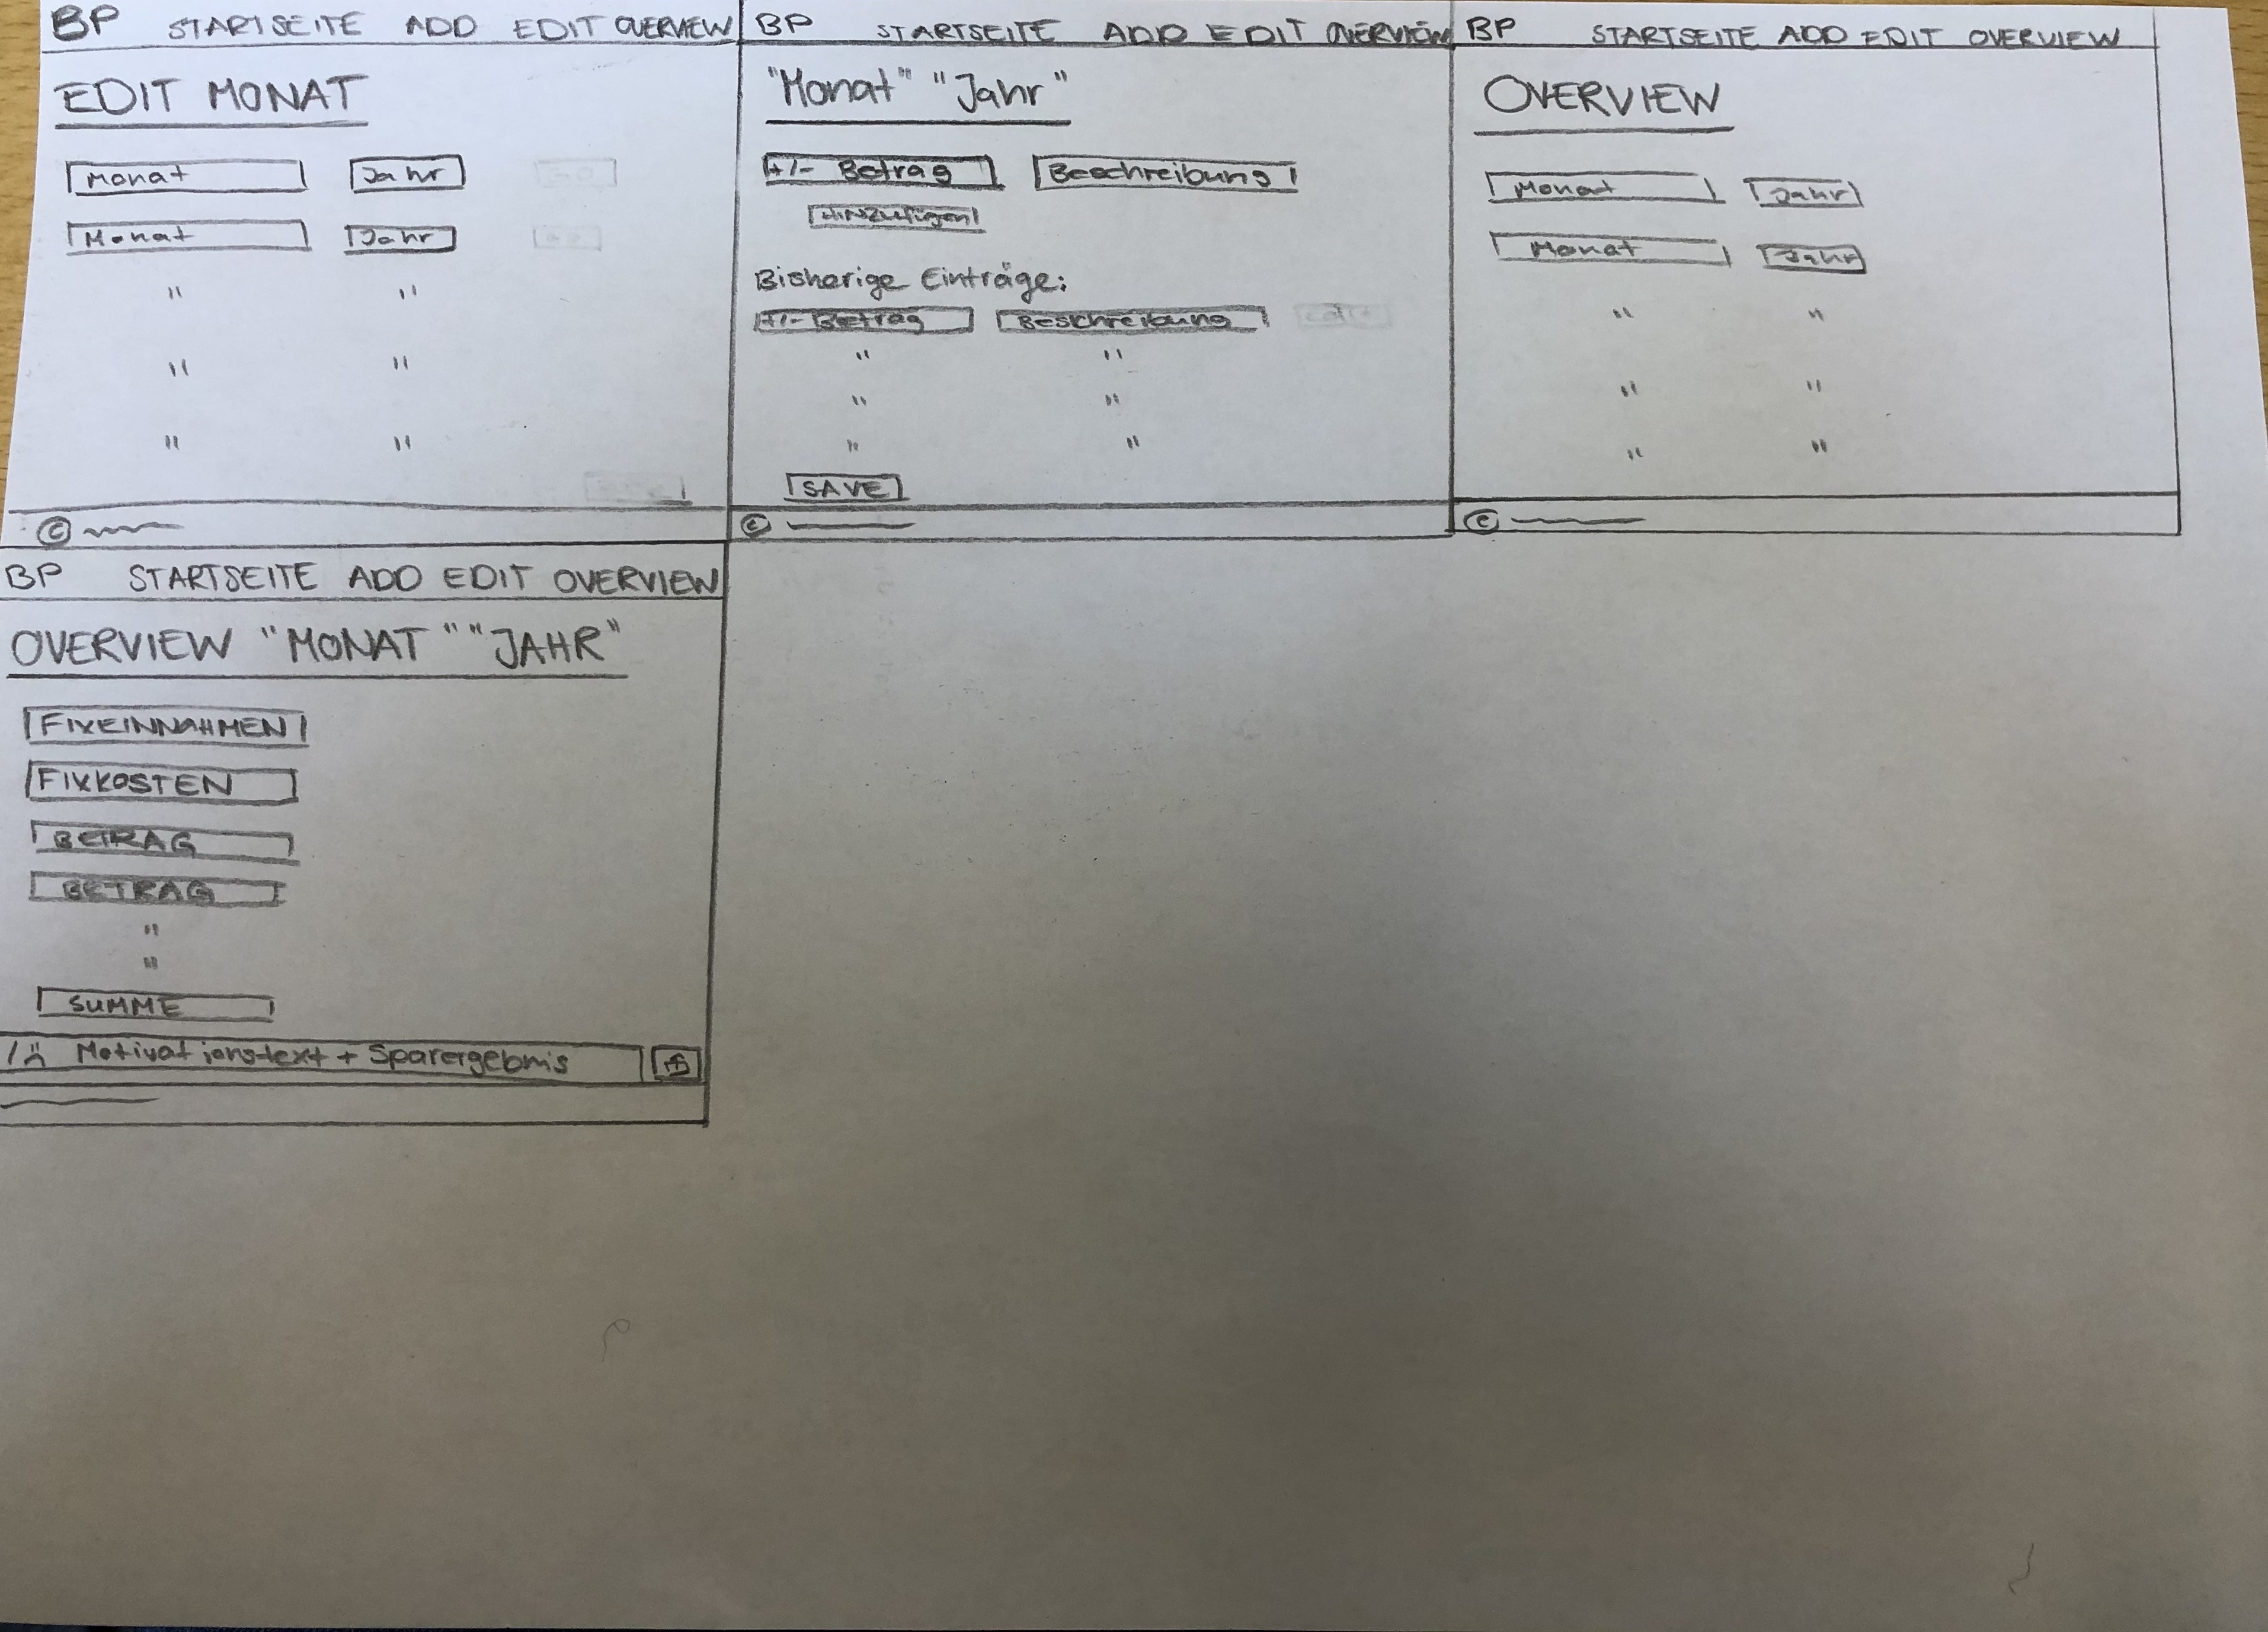 BP STARTSEITE ADD EDIT OVERVIEW
EDIT MONAT
Monat Jahr
Monat Jahr
" "
" "
" "
©
BP STARTSEITE ADD EDIT OVERVIEW
"Monat" "Jahr"
+/- Betrag Beschreibung
Hinzufügen
Bisherige Einträge:
+/- Betrag Beschreibung
" "
" "
" "
SAVE
©
BP STARTSEITE ADD EDIT OVERVIEW
OVERVIEW
Monat Jahr
Monat Jahr
" "
" "
" "
©
BP STARTSEITE ADD EDIT OVERVIEW
OVERVIEW "MONAT" "JAHR"
FIXEINNAHMEN
FIXKOSTEN
BETRAG
BETRAG
"
"
SUMME
Motivationstext + Sparergebnis